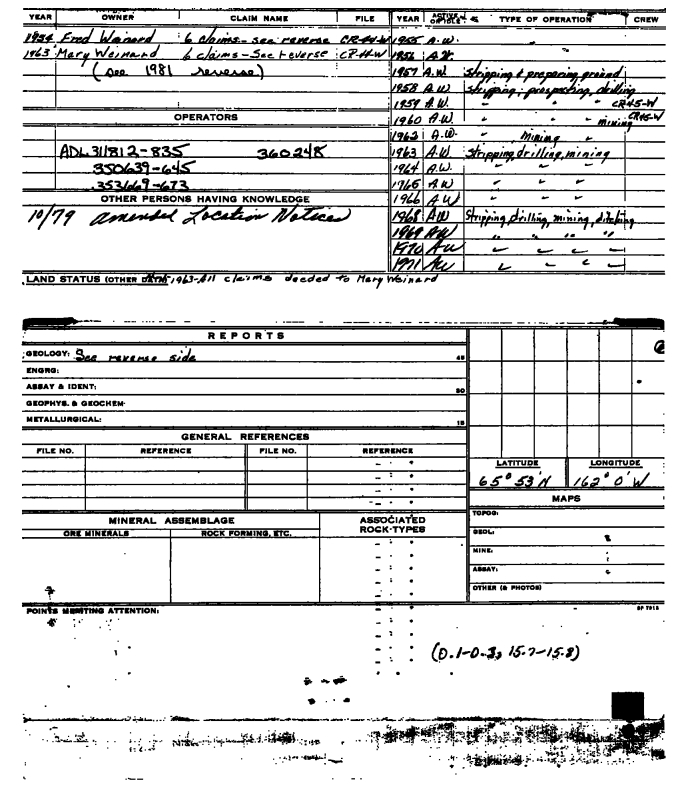 YEAR OWNER CLAIM NAME FILE YEAR ACTIVE OFFICE TYPE OF OPERATION CREW
1954 Fred Weinard 6 claims - see reverse CR-44-W 1955 A.W. "
1963 Mary Weinard 6 claims - See reverse CR-44-W 1956 A.W. "
(see 1981 reverse) 1957 A.W. Stripping & preparing ground
1958 A.W. Stripping; prospecting, drilling
1959 A.W. " " " CR45-W
OPERATORS 1960 A.W. " " mining CR45-W
1962 A.W. " Mining "
ADL 311812-835 360248 1963 A.W. Stripping, drilling, mining
350639-645 1964 A.W. " " "
353669-673 1965 A.W " " "
OTHER PERSONS HAVING KNOWLEDGE 1966 A W " " "
10/79 amended Location Notices 1968 AW Stripping, drilling, mining, ditching
1969 AW " " " "
1970 AW " " " "
1971 AW " " " "
LAND STATUS (OTHER 1963-All claims deeded to Mary Weinard
REPORTS
GEOLOGY: See reverse side 45
ENGRG:
ASSAY & IDENT: 50
GEOPHYS. & GEOCHEM-
METALLURGICAL: 15
GENERAL REFERENCES
FILE NO. REFERENCE FILE NO. REFERENCE
LATITUDE LONGITUDE
65° 53'N 162° 0'W
MAPS
MINERAL ASSEMBLAGE ASSOCIATED ROCK-TYPES TOPOG:
ORE MINERALS ROCK FORMING, ETC. GEOL:
MINE:
ASSAY:
OTHER (& PHOTOS)
POINTS MERITING ATTENTION:
(0.1-0.3, 15.7-15.8)